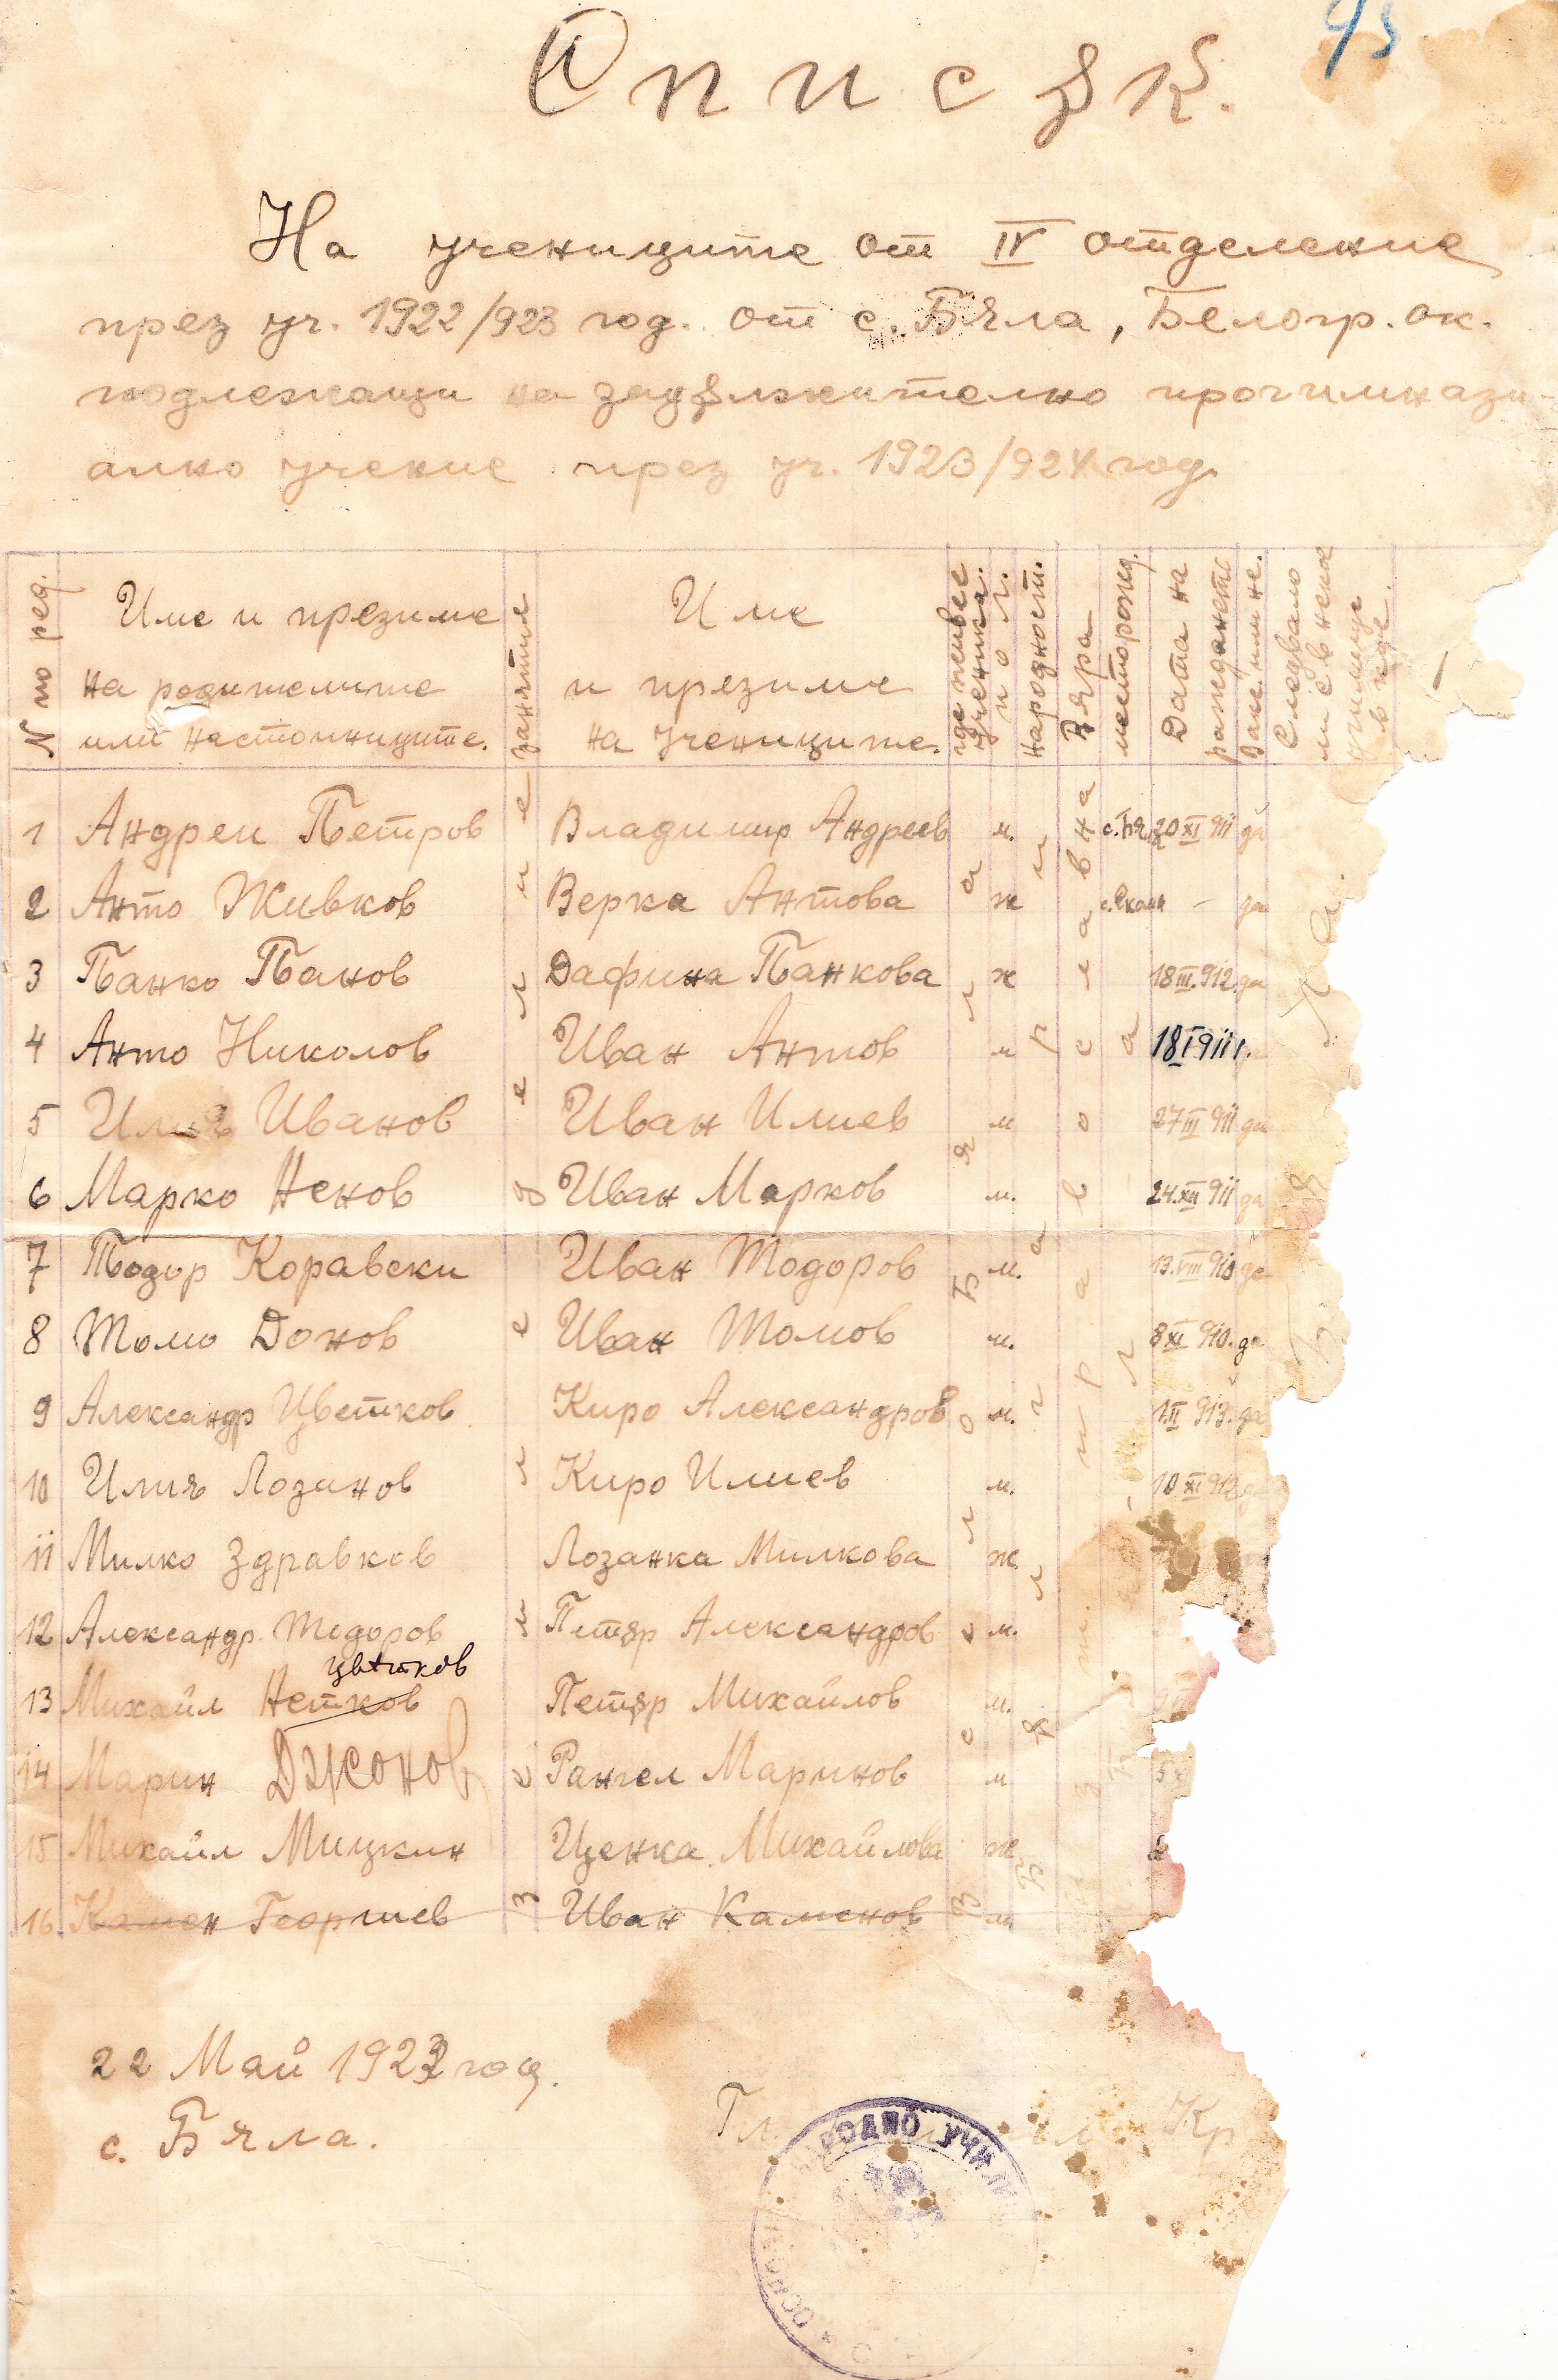 95
Списѫк.
На учениците от IV отделение
през уч. 1922/923 год. от с. Бяла, Белогр. ок.
подлежащи на задѫлжително прогимнази-
ално учение през уч. 1923/924 год
N по ред.
Име и презиме
на родителите
или настойниците.
занятие
Име
и презиме
на учениците.
где живее
ученика.
пол.
Народност.
Вяра
месторожд.
Дата на
раждането
Следвало
ли е в некое
училище
в
1 Андреи Петров Владимир Андреев м. 20 XI 911 да
2 Анто Живков Верка Антова ж — да
3 Панко Панов Дафина Панкова ж 18 III. 912. да
4 Анто Николов Иван Антов м 18 I 911
5 Илия Иванов Иван Илиев м 27 III 911 да
6 Марко Ненов Иван Марков м. 24. XII 911 да
7 Тодор Коравски Иван Тодоров м. 13. VIII 910 да
8 Томо Донов Иван Томов м. 8 XI 910. да
9 Александр Цветков Киро Александров м. 1. II 913. да
10 Илия Лозанов Киро Илиев м. 10 XI 912
11 Милко Здравков Лозанка Милкова ж.
12 Александр. Тодоров Петѫр Александров м.
Цветков
13 Михаил Нетков Петѫр Михайлов м.
14 Марин Джонов Рангел Маринов м
15 Михаил Мицкин Ценка Михайлова ж
16. Камен Георгиев Иван Каменов м
земледелие
с. Бяла
Българ
православна
22 Май 1923 год.
с. Бяла.
Гл. Кр
НАРОДНО УЧИЛИ